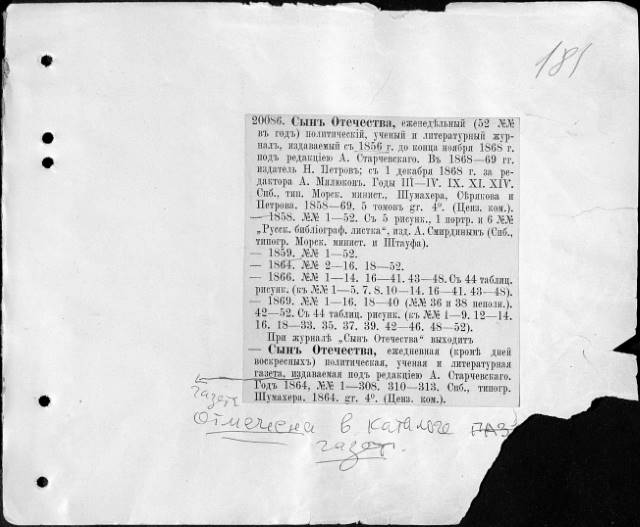 181
20086. Сынъ Отечества, еженедѣльный (52 №№
въ годъ) политическій, ученый и литературный жур-
налъ, издаваемый съ 1856 г. до конца ноября 1868 г.
подъ редакціею А. Старчевскаго. Въ 1868—69 гг.
издатель Н. Петровъ; съ 1 декабря 1868 г. за ре-
дактора А. Милюков. Годы III—IV. IX. XI. XIV.
Спб., тип. Морск. минист., Шумахера, Сѣрякова и
Петрова. 1858—69. 5 томовъ gr. 4⁰. (Ценз. ком.).
— 1858. №№ 1—52. Съ 5 рисунк., 1 портр. и 6 №№
„Русск. библіограф. листка“, изд. А. Смирдинымъ (Спб.,
типогр. Морск. минист. и Штауфа).
— 1859. №№ 1—52.
— 1864. №№ 2—16. 18—52.
— 1866. №№ 1—14. 16—41. 43—48. Съ 44 таблиц.
рисунк. (къ №№ 1—5. 7. 8. 10—14. 16—41. 43—48).
— 1869. №№ 1—16. 18—40 (№№ 36 и 38 неполн.).
42—52. Съ 44 таблиц. рисунк. (къ №№ 1—9. 12—14.
16. 18—33. 35. 37. 39. 42—46. 48—52).
При журналѣ „Сынъ Отечества“ выходитъ
— Сынъ Отечества, ежедневная (кромѣ дней
воскресныхъ) политическая, ученая и литературная
газета, издаваемая подъ редакціею А. Старчевскаго.
Годъ 1864, №№ 1—308. 310—313. Спб., типогр.
Шумахера. 1864. gr. 4⁰. (Ценз. ком.).
газет
Отмечена в каталоге
газет.